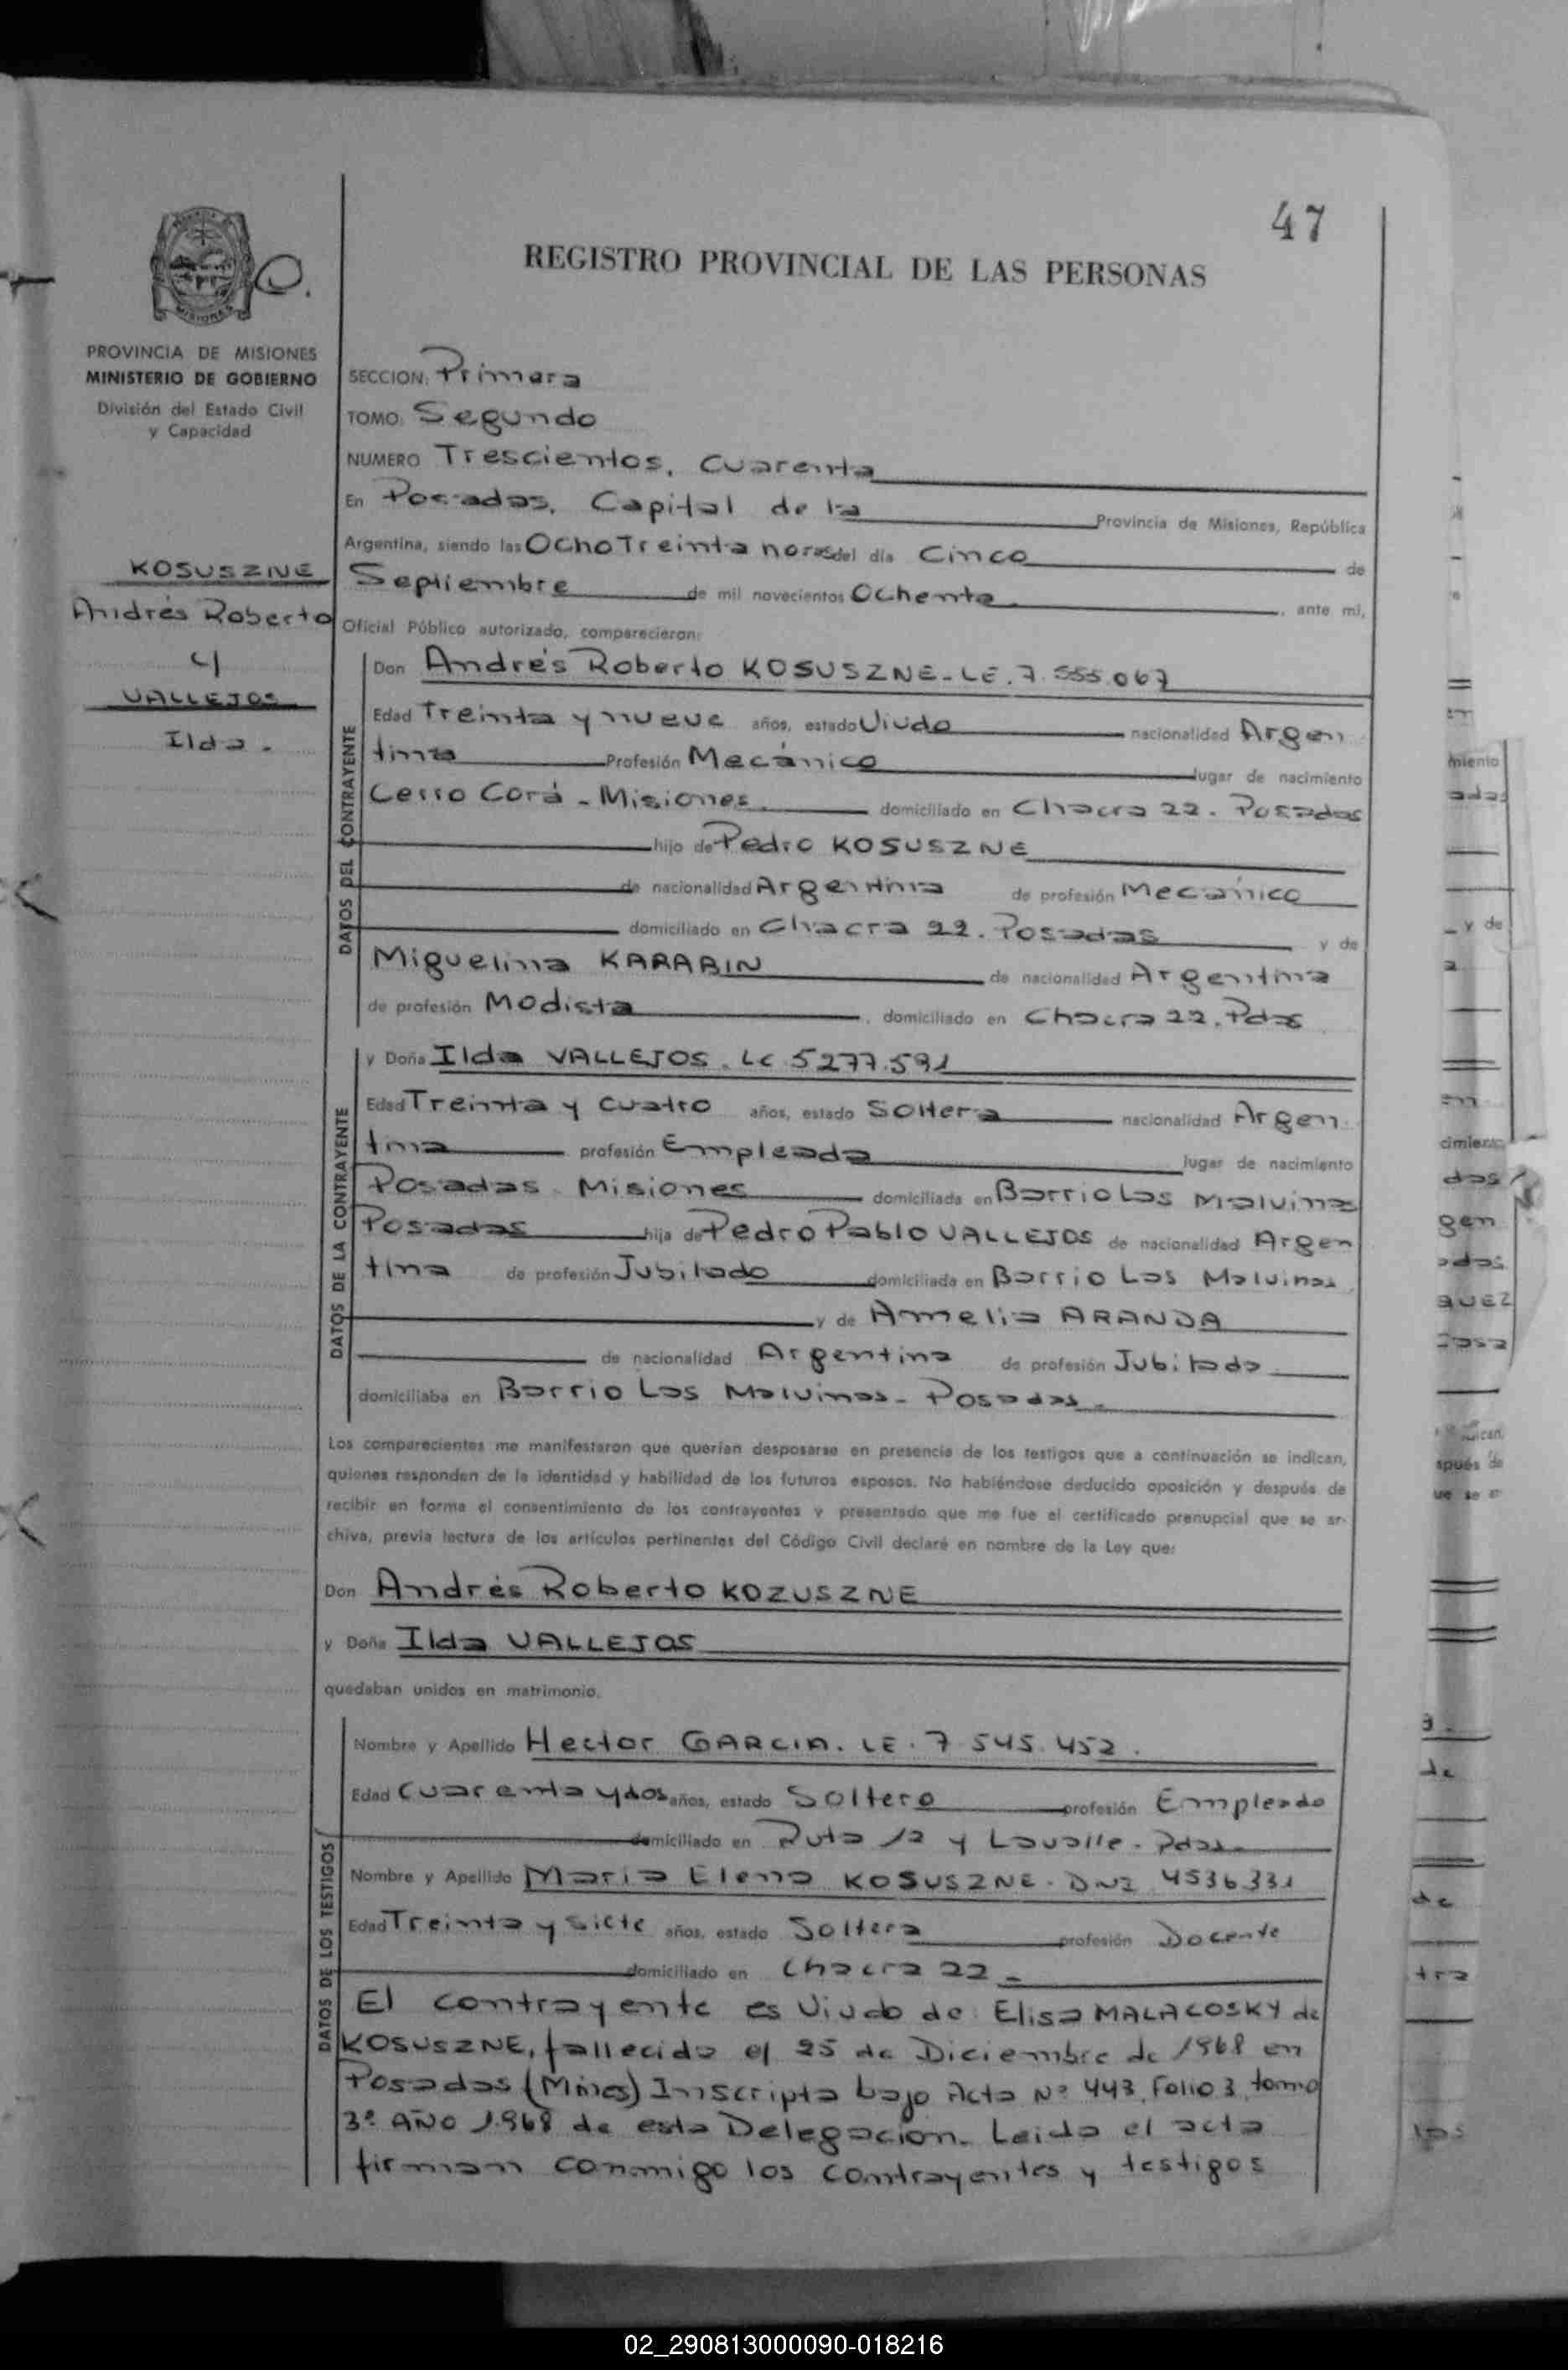 47
REGISTRO PROVINCIAL DE LAS PERSONAS
PROVINCIA DE MISIONES
MINISTERIO DE GOBIERNO
División del Estado Civil
y Capacidad
SECCION: Primera
TOMO: Segundo
NUMERO Trescientos, cuarenta
En Posadas, Capital de la Provincia de Misiones, República
Argentina, siendo las Ocho Treinta horas del día Cinco de
Septiembre de mil novecientos Ochenta, ante mi,
Oficial Público autorizado, comparecieron:
KOSUSZNE
Andrés Roberto
y
VALLEJOS
Ilda.
DATOS DEL CONTRAYENTE
Don Andrés Roberto KOSUSZNE - LE. 7.555.067
Edad Treinta y nueve años, estado Viudo nacionalidad Argen
tina Profesión Mecánico lugar de nacimiento
Cerro Corá - Misiones. domiciliado en Chacra 22. Posadas
hijo de Pedro KOSUSZNE
de nacionalidad Argentina de profesión Mecánico
domiciliado en Chacra 22. Posadas y de
Miguelina KARABIN de nacionalidad Argentina
de profesión Modista, domiciliado en Chacra 22. Pdas
DATOS DE LA CONTRAYENTE
y Doña Ilda VALLEJOS. LC 5277.591
Edad Treinta y cuatro años, estado Soltera nacionalidad Argen
tina profesión Empleada lugar de nacimiento
Posadas - Misiones domiciliada en Barrio Las Malvinas
Posadas hija de Pedro Pablo VALLEJOS de nacionalidad Argen
tina de profesión Jubilado domiciliada en Barrio Las Malvinas
y de Amelia ARANDA
de nacionalidad Argentina de profesión Jubilada
domiciliaba en Barrio Las Malvinas - Posadas.
Los comparecientes me manifestaron que querían desposarse en presencia de los testigos que a continuación se indican,
quienes responden de la identidad y habilidad de los futuros esposos. No habiéndose deducido oposición y después de
recibir en forma el consentimiento de los contrayentes y presentado que me fue el certificado prenupcial que se ar-
chiva, previa lectura de los artículos pertinentes del Código Civil declaré en nombre de la Ley que:
Don Andrés Roberto KOZUSZNE
y Doña Ilda VALLEJOS
quedaban unidos en matrimonio.
DATOS DE LOS TESTIGOS
Nombre y Apellido Hector GARCIA. LE. 7 545.452.
Edad Cuarenta y dos años, estado Soltero profesión Empleado
domiciliado en Ruta 12 y Lavalle. Pdas.
Nombre y Apellido Maria Elena KOSUSZNE. DNI 4536331
Edad Treinta y siete años, estado Soltera profesión Docente
domiciliado en Chacra 22
El contrayente es Viudo de: Elisa MALACOSKY de
KOSUSZNE, fallecida el 25 de Diciembre de 1968 en
Posadas (Mnes) Inscripta bajo Acta Nº 443, Folio 3, tomo
3º AÑO 1.968 de esta Delegación. Leida el acta
firman conmigo los contrayentes y testigos
02_290813000090-018216